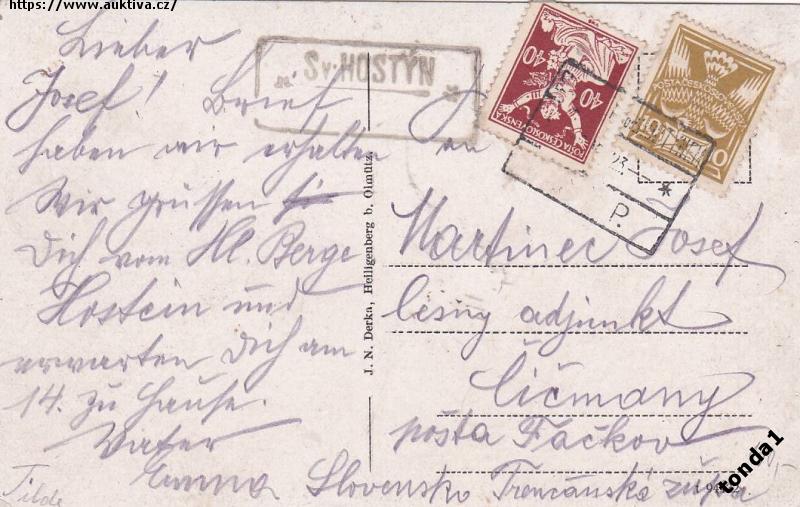 https://www.auktiva.cz/
Lieber
Josef! Brief
haben wir erhalten
Wir grüssen
Dich vom Hl. Berge
Hostein und
erwarten Dich am
14. zu Hause.
Vater
Emma
Tilde
Sv. HOSTÝN *
J. N. Derka, Heiligenberg b. Olmütz.
40 40
POŠTA ČESKOSLOVENSKÁ
23
* P.
Martinec Josef
lesný adjunkt
Čičmany
pošta Fačkov
Slovensko Trenčánská župa
tonda1